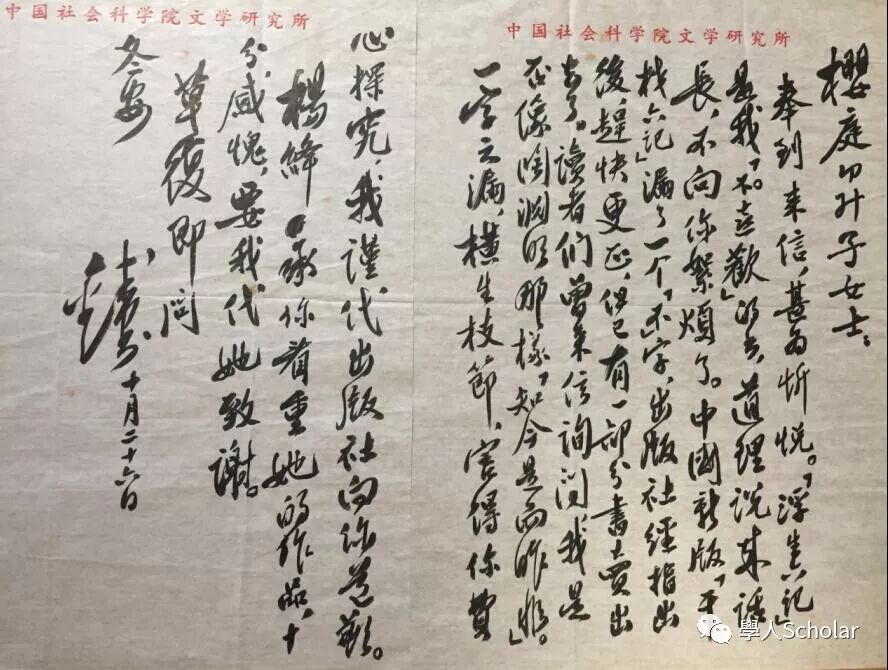 中国社会科学院文学研究所
櫻庭ゆみ子女士:
奉到来信,甚为忻悦。「浮生六记」
是我「不喜歡」的书,道理说来话
長,不向你絮煩了。中國新版「干
校六记」漏了一个「不」字,出版社經指出
後,趕快更正,但已有一部分書賣出
去了。讀者们曾来信詢问,我是
否像陶渊明那樣「知今是而昨非」。
一字之漏,橫生枝節,害得你費
中国社会科学院文学研究所
心探究,我謹代出版社向你道歉。
楊絳承你看重她的作品,十
分感愧,要我代她致謝。
草復即问
冬安
十月二十六日
學人Scholar